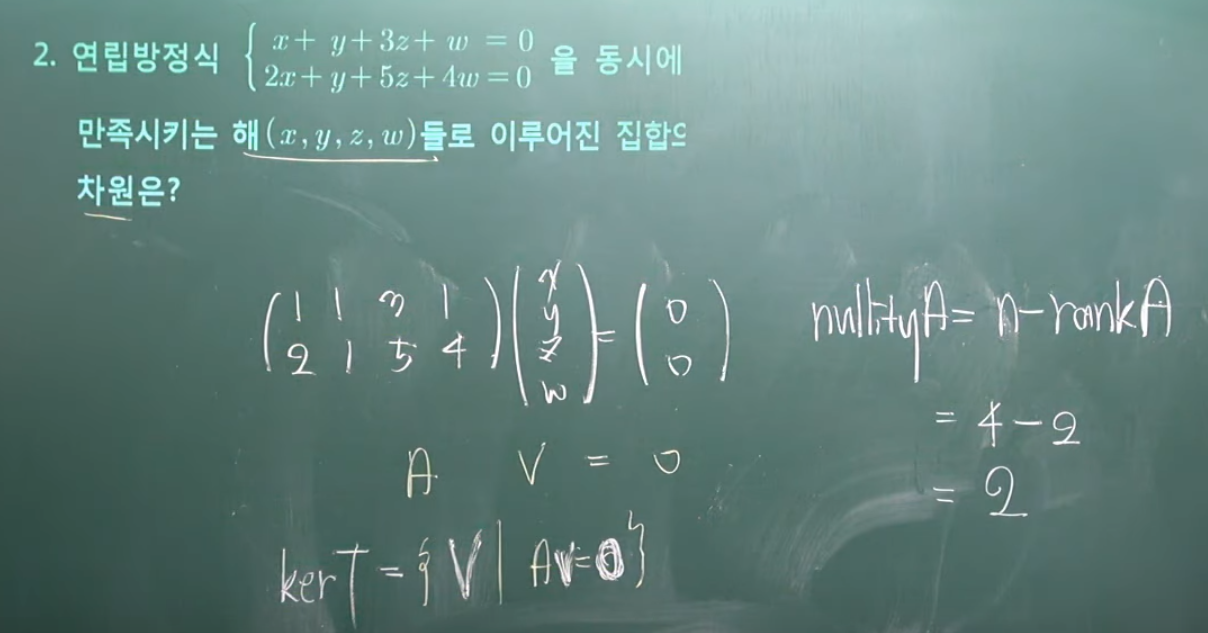 2. 연립방정식 { x + y + 3z + w = 0 을 동시에
2x + y + 5z + 4w = 0
만족시키는 해(x, y, z, w)들로 이루어진 집합으
차원은?
( 1 1 3 1 ) ( x ) = ( 0 )
( 2 1 5 4 ) ( y ) ( 0 )
z
w
A V = 0
ker T = { V | AV=0 }
nullity A = n - rank A
= 4 - 2
= 2